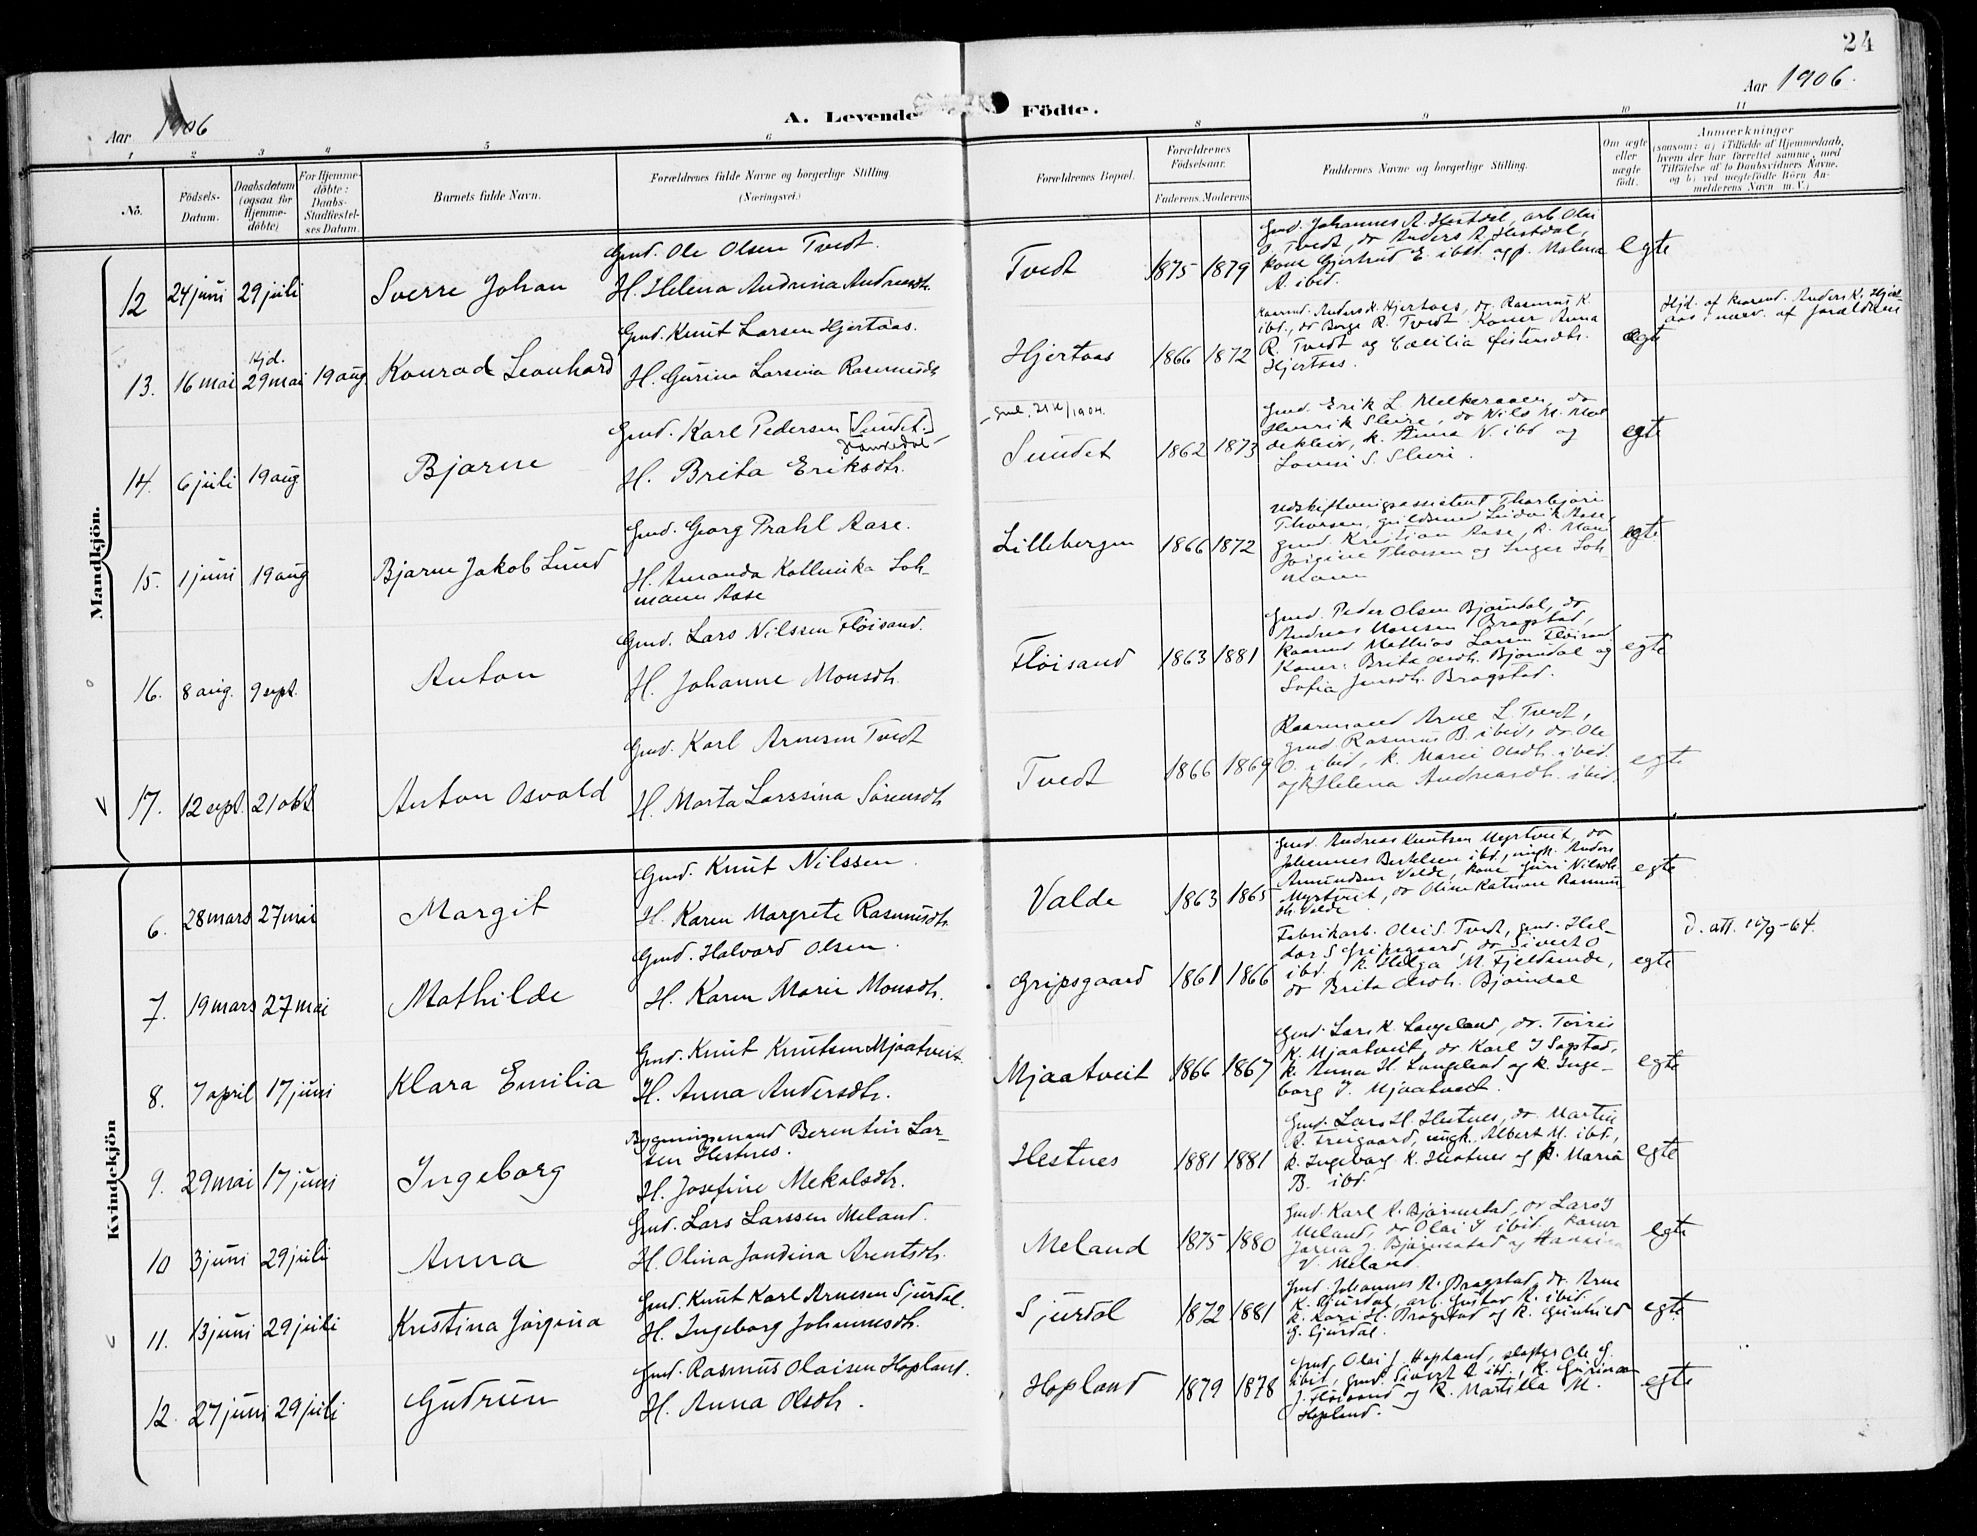 24
Aar 1906
A. Levende Födte.
Aar 1906.
1 2 3 4 5 6 8 9 10 11
No.
Födsels-Datum.
Daabsdatum (ogsaa for Hjemme-döbte)
For Hjemme-döbte: Daabs-Stadfæstel-ses Datum.
Barnets fulde Navn.
Forældrenes fulde Navne og borgerlige Stilling (Næringsvei.)
Forældrenes Bopæl.
Forældrenes Födselsaar.
Faderens. Moderens
Faddernes Navne og borgerlige Stilling.
Om ægte eller uægte födt.
Anmærkninger
(saasom: a) i Tilfælde af Hjemmedaab, hvem der har forrettet samme, med Tilföielse af to Daabsvidners Navne. og b) ved uægtefödte Börn An-melderens Navn m. V.)
Mandkjön.
12 24 juni 29 juli Sverre Johan
Gmd. Ole Olsen Tvedt.
H. Helena Andrina Andreasdtr.
Tvedt 1875 1879
Gmd. Johannes A. Hestdal, arb Olai
O. Tvedt, do Anders A. Hestdal,
kone Gjertrud E. ibid. og p. Malena
A. ibid.
egte
13. 16 mai Hjd. 29 mai 19 aug Konrad Leonhard
Gmd. Knut Larsen Hjertaas.
H. Gurina Larsina Rasmusdtr
Hjertaas 1866 1872
Kaarmd. Anders K. Hjertaas, do Rasmus K.
ibd., do Borge R. Tvedt Koner Anna
R. Tvedt og Cecilia Eistensdtr.
Hjertaas.
egte
Hjd. af kaarmd. Anders K. Hjert-
aas i nærv. af forældrene
14. 6 juli 19 aug Bjarne
Gmd. Karl Pedersen [Sundet.]
H. Brita Eriksdtr.
Sundet 1862 1873
Gmd. Erik L. Melkeraaen, do
Henrik Sleire, do Nils M. Mol
dekleiv, k. Anna N. ibd og
Lovisi S. Sleiri.
egte
15. 1 juni 19 aug Bjarne Jakob Lund
Gmd. Georg Prahl Aase.
H. Amanda Kathinka Loh-
mann Aase
Lillebergen 1866 1872
Udskiftningsassistent Thorbjørn
Thorsen, guldsmed Ludvik Aase,
gmd. Kristian Aase, k. Mari
Jørgine Thorsen og Inger Loh
mann
egte
16. 8 aug. 9 sept. Anton
Gmd. Lars Nilssen Fløisand.
H. Johanne Monsdtr.
Fløisand 1863 1881
Gmd. Peder Olsen Bjørndal, do
Andreas Monsen Bragstad,
kaarmd Mathias Larsen Fløisand
Koner: Brita Olsdtr. Bjørndal og
Sofia Jensdtr. Bragstad.
egte
17. 12 sept. 21 okt Anton Osvald
Gmd. Karl Arnesen Tvedt
H. Marta Larssina Sørensdtr
Tvedt 1866 1869
Kaarmand Arne L. Tvedt,
gmd. Rasmus B. ibid, do Ole
O. ibid, k. Marie Olsdtr. ibid.
og k Helena Andreasdtr. ibid.
egte
Kvindekjön
6. 28 mars 27 mai Margit
Gmd. Knut Nilssen.
H. Karen Margrete Rasmusdtr.
Valde 1863 1865
Gmd. Andreas Knutsen Myrtveit, do
Johannes Bertelsen ibd., ungk. Anders
Amundsen Valde, kone Guri Nilsdtr.
Myrtveit, do Olina Katrine Rasmus
dtr. Valde
egte
7. 19 mars 27 mai Mathilde
Gmd. Halvard Olsen.
H. Karen Marie Monsdtr.
Gripsgaard 1861 1866
Fabrikarb. Olai S. Tvedt, gmd. Hal-
dor S Gripsgaard, do Sivert O
ibd., k. Helga M. Fjeldsende,
do Brita Olsdtr. Bjørndal
egte
D. att. 10/9-64.
8. 7 april 17 juni Klara Emilia
Gmd. Knut Knutsen Mjaatveit.
H. Anna Andersdtr.
Mjaatveit 1866 1867
Gmd. Lars K. Langeland, do. Torris
K. Mjaatveit, do Karl J Sagstad,
k. Anna H. Langeland og k. Inge-
borg J. Mjaatveit.
egte
9. 29 mai 17 juni Ingeborg
Bygningsmand Berentin Lar-
sen Hestnes.
H. Josefine Mekalsdtr.
Hestnes 1881 1881
Gmd. Lars H. Hestnes, do. Martin
A. Freigaard, ungk. Albert M. ibd.,
k. Ingeborg K. Hestnes og p. Maria
B. ibd.
egte
10 3 juni 29 juli Anna
Gmd. Lars Larssen Meland.
H Olina Jandina Arentsdtr.
Meland 1875 1880
Gmd. Karl R. Bjørnestad, do Lars J
Meland, do Olai J ibid, koner
Meland.
egte
11. 13 juni 29 juli Kristina Jørgina
Gmd. Knut Karl Arnesen Sjurdal.
H. Ingeborg Johannesdtr.
Sjurdal 1872 1881
Gmd. Johannes A. Bragstad, do. Arne
K. Sjurdal, arb. Gustav A. ibid.
k. Kari H. Bragstad og k. Gunhild
G. Sjurdal.
egte
12. 27 juni 29 juli Gudrun
Gmd. Rasmus Olaisen Hopland.
H. Anna Olsdtr.
Hopland 1879 1878
Gmd. Olai J. Hopland, slagter Ole G.
ibid, gmd. Sivert R ibd., k. Gurina
J. Fløisand og k. Martilla M.
Hopland.
egte